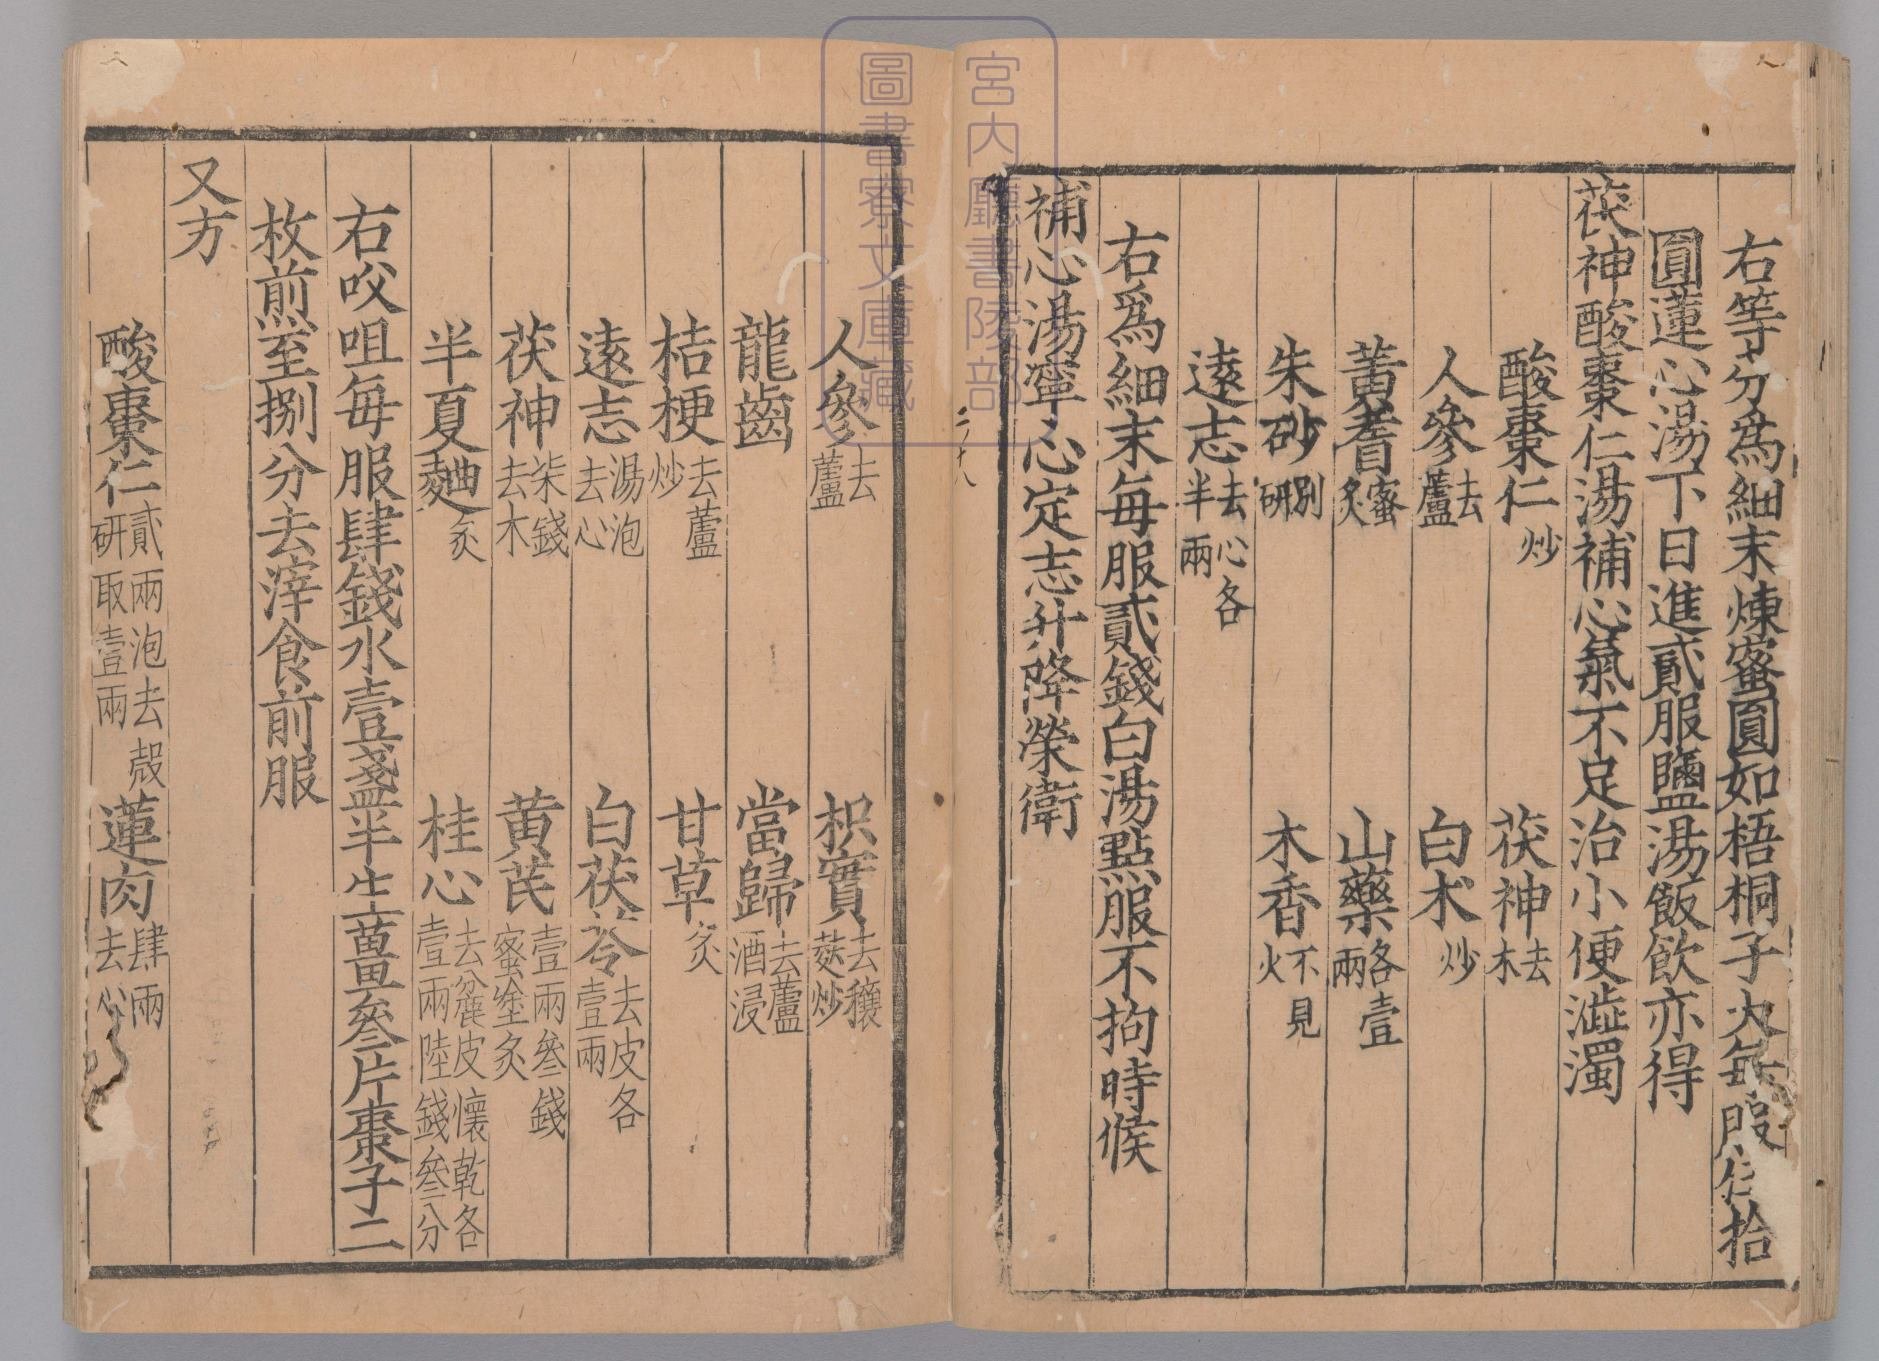 右等分爲細末煉蜜圓如梧桐子大每服伍拾
圓蓮心湯下日進貳服鹽湯飯飲亦得
茯神酸棗仁湯補心氣不足治小便澁濁
酸棗仁炒 茯神去木
人參去蘆 白朮炒
黃耆蜜炙 山藥各壹兩
朱砂別研 木香不見火
遠志去心各半兩
右爲細末每服貳錢白湯點服不拘時候
補心湯寧心定志升降榮衛
人參去蘆 枳實去穰麩炒
龍齒 當歸去蘆酒浸
桔梗去蘆炒 甘草炙
遠志湯泡去心 白茯苓去皮各壹兩
茯神柒錢去木 黃芪壹兩叄錢蜜塗炙
半夏麯炙 桂心去麄皮懷乾各壹兩陸錢叄分
右㕮咀每服肆錢水壹盞半生薑叄片棗子二
枚前至捌分去滓食前服
又方
酸棗仁貳兩泡去殼研取壹兩 蓮肉肆兩去心
宮内廳書陵部
圖書寮文庫藏